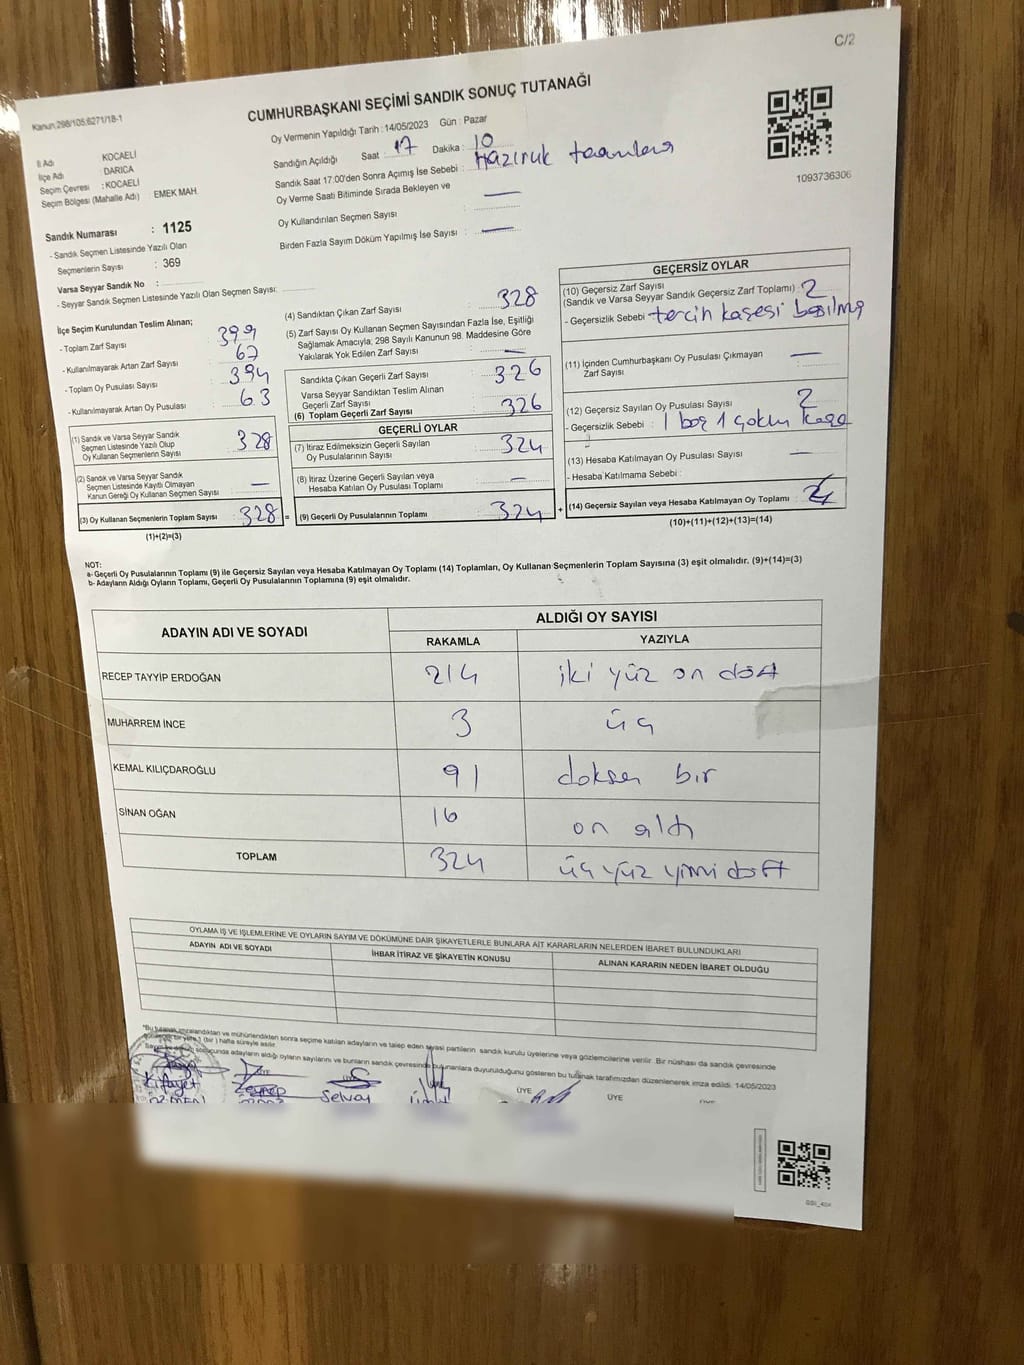 C/2
Kanun:298/105;6271/18-1
CUMHURBAŞKANI SEÇİMİ SANDIK SONUÇ TUTANAĞI
Oy Vermenin Yapıldığı Tarih : 14/05/2023 Gün : Pazar
İl Adı KOCAELİ
İlçe Adı DARICA
Seçim Çevresi : KOCAELİ
Seçim Bölgesi (Mahalle Adı) EMEK MAH.
Sandığın Açıldığı Saat : 17 Dakika : 10
Sandık Saat 17:00'den Sonra Açımış İse Sebebi : Hazırlık
Oy Verme Saati Bitiminde Sırada Bekleyen ve
Oy Kullandırılan Seçmen Sayısı : —
Birden Fazla Sayım Döküm Yapılmış İse Sayısı : —
1093736306
Sandık Numarası : 1125
- Sandık Seçmen Listesinde Yazılı Olan
Seçmenlerin Sayısı : 369
Varsa Seyyar Sandık No :
- Seyyar Sandık Seçmen Listesinde Yazılı Olan Seçmen Sayısı:
İlçe Seçim Kurulundan Teslim Alınan;
- Toplam Zarf Sayısı : 399
- Kullanılmayarak Artan Zarf Sayısı :
- Toplam Oy Pusulası Sayısı : 394
- Kullanılmayarak Artan Oy Pusulası : 63
(1) Sandık ve Varsa Seyyar Sandık
Seçmen Listesinde Yazılı Olup
Oy Kullanan Seçmenlerin Sayısı : 328
(2) Sandık ve Varsa Seyyar Sandık
Seçmen Listesinde Kayıtlı Olmayan
Kanun Gereği Oy Kullanan Seçmen Sayısı : —
(3) Oy Kullanan Seçmenlerin Toplam Sayısı : 328
(1)+(2)=(3)
(4) Sandıktan Çıkan Zarf Sayısı : 328
(5) Zarf Sayısı Oy Kullanan Seçmen Sayısından Fazla İse, Eşitliği
Sağlamak Amacıyla; 298 Sayılı Kanunun 98. Maddesine Göre
Yakılarak Yok Edilen Zarf Sayısı : —
Sandıkta Çıkan Geçerli Zarf Sayısı : 326
Varsa Seyyar Sandıktan Teslim Alınan
Geçerli Zarf Sayısı
(6) Toplam Geçerli Zarf Sayısı : 326
GEÇERLİ OYLAR
(7) İtiraz Edilmeksizin Geçerli Sayılan
Oy Pusulalarının Sayısı : 324
(8) İtiraz Üzerine Geçerli Sayılan veya
Hesaba Katılan Oy Pusulası Toplamı : —
= (9) Geçerli Oy Pusulalarının Toplamı : 324
GEÇERSİZ OYLAR
(10) Geçersiz Zarf Sayısı
(Sandık ve Varsa Seyyar Sandık Geçersiz Zarf Toplamı) : 2
- Geçersizlik Sebebi : tercih kaşesi basılmış
(11) İçinden Cumhurbaşkanı Oy Pusulası Çıkmayan
Zarf Sayısı : —
(12) Geçersiz Sayılan Oy Pusulası Sayısı : 2
- Geçersizlik Sebebi : 1 boş 1
(13) Hesaba Katılmayan Oy Pusulası Sayısı : —
- Hesaba Katılmama Sebebi :
+ (14) Geçersiz Sayılan veya Hesaba Katılmayan Oy Toplamı : 4
(10)+(11)+(12)+(13)=(14)
NOT:
a- Geçerli Oy Pusulalarının Toplamı (9) ile Geçersiz Sayılan veya Hesaba Katılmayan Oy Toplamı (14) Toplamları, Oy Kullanan Seçmenlerin Toplam Sayısına (3) eşit olmalıdır. (9)+(14)=(3)
b- Adayların Aldığı Oyların Toplamı, Geçerli Oy Pusulalarının Toplamına (9) eşit olmalıdır.
ADAYIN ADI VE SOYADI ALDIĞI OY SAYISI
RAKAMLA YAZIYLA
RECEP TAYYİP ERDOĞAN 214 iki yüz on dört
MUHARREM İNCE 3 üç
KEMAL KILIÇDAROĞLU 91 doksan bir
SİNAN OĞAN 16 on altı
TOPLAM 324 üç yüz yirmi dört
OYLAMA İŞ VE İŞLEMLERİNE VE OYLARIN SAYIM VE DÖKÜMÜNE DAİR ŞİKAYETLERLE BUNLARA AİT KARARLARIN NELERDEN İBARET BULUNDUKLARI
ADAYIN ADI VE SOYADI İHBAR İTİRAZ VE ŞİKAYETİN KONUSU ALINAN KARARIN NEDEN İBARET OLDUĞU
"Bu tutanak imzalandıktan ve mühürlendikten sonra seçime katılan adayların ve talep eden siyasi partilerin sandık kurulu üyelerine veya gözlemcilerine verilir. Bir nüshası da sandık çevresinde
bir yere 1 (bir) hafta süreyle asılır.
sonucunda adayların aldığı oyların sayılarını ve bunların sandık çevresinde bulunanlara duyurulduğunu gösteren bu tutanak tarafımızdan düzenlenerek imza edildi. 14/05/2023
ÜYE ÜYE ÜYE
Kifayet Zeynep Selvay Ümit